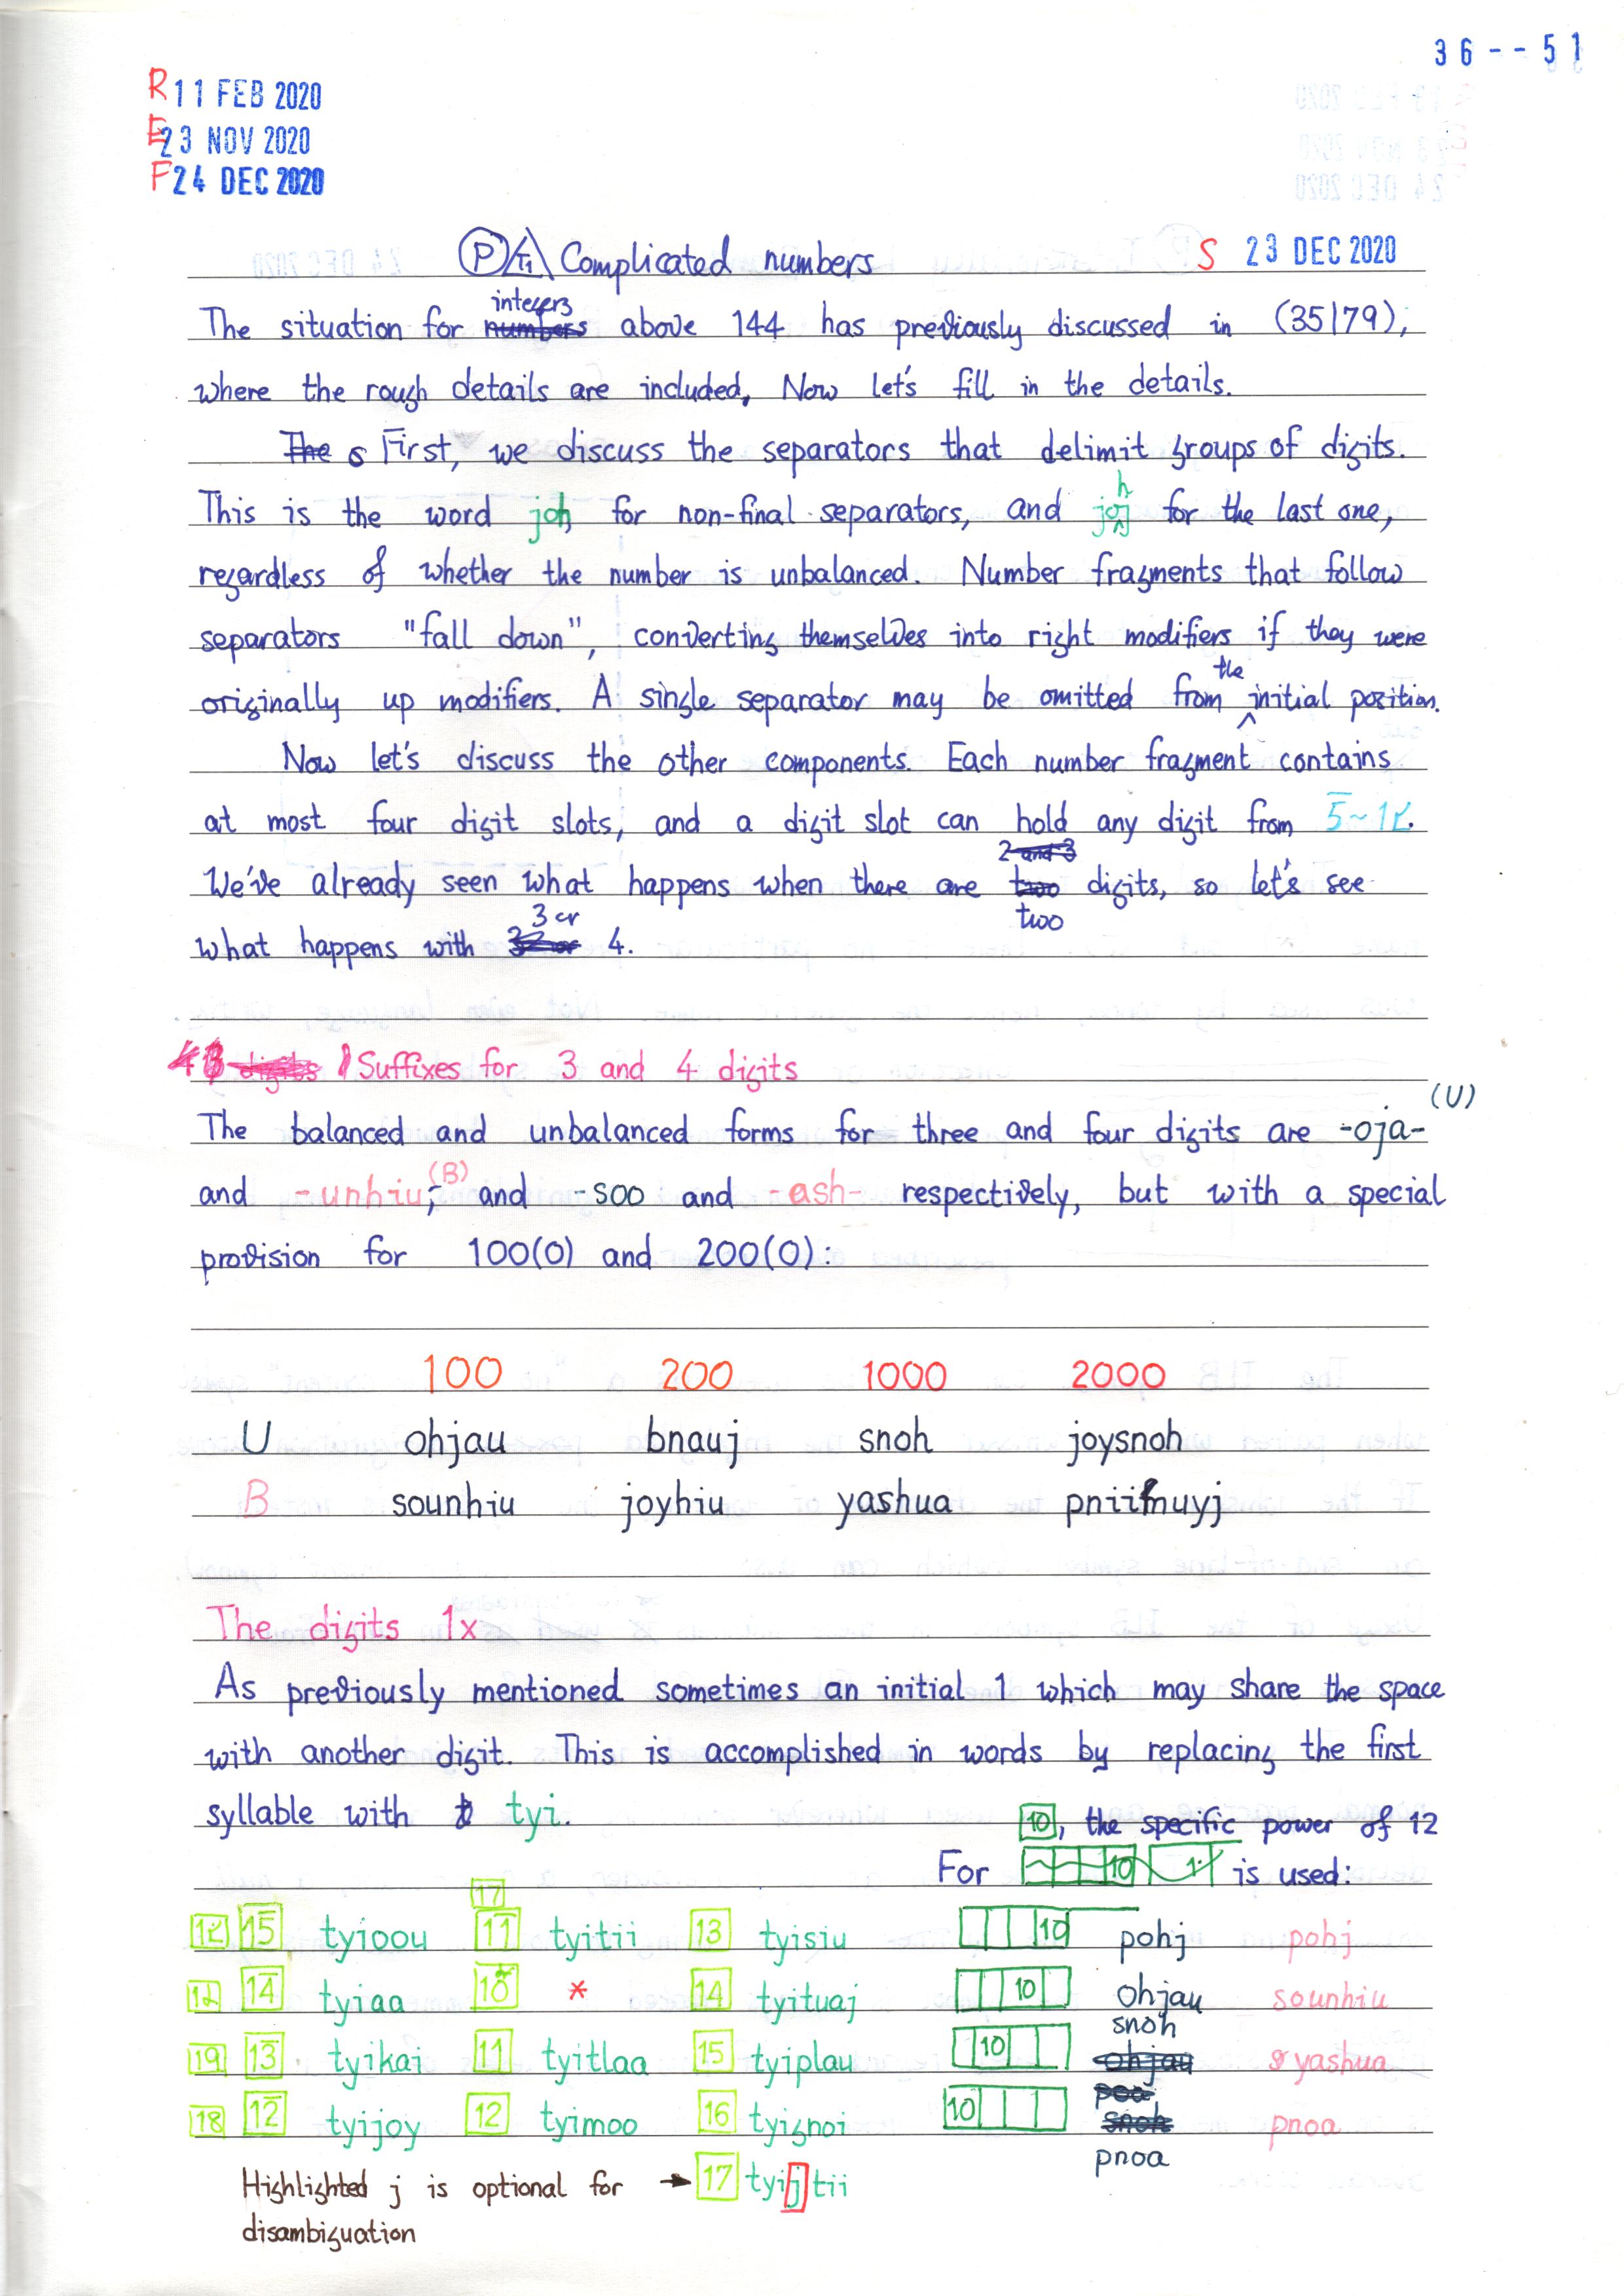 36--51
R 11 FEB 2020
E 23 NOV 2020
F 24 DEC 2020
P T1 Complicated numbers S 23 DEC 2020
The situation for integers above 144 has previously discussed in (35179),
where the rough details are included. Now let's fill in the details.
First, we discuss the separators that delimit groups of digits.
This is the word joh for non-final separators, and johj for the last one,
regardless of whether the number is unbalanced. Number fragments that follow
separators "fall down", converting themselves into right modifiers if they were
originally up modifiers. A single separator may be omitted from the initial position.
Now let's discuss the other components. Each number fragment contains
at most four digit slots, and a digit slot can hold any digit from
We've already seen what happens when there are two digits, so let's see
what happens with 3 or 4.
Suffixes for 3 and 4 digits
The balanced and unbalanced forms for three and four digits are -oja- (U)
and -unhiu- (B), and -soo and -ash- respectively, but with a special
provision for 100(0) and 200(0):
100 200 1000 2000
U ohjau bnauj snoh joysnoh
B sounhiu joyhiu yashua
The digits 1x
As previously mentioned sometimes an initial 1 which may share the space
with another digit. This is accomplished in words by replacing the first
syllable with tyi.
10, the specific power of 12
For 10 is used:
17
15̅ tyioou 1̅1̅ tyitii 13 tyisiu 10 pohj pohj
14̅ tyiaa 10 * 14 tyituaj 10 ohjau sounhiu
snoh
19 13̅ tyikai 11 tyitlaa 15 tyiplau 10 yashua
18 12̅ tyijoy 12 tyimoo 16 tyignoi 10 pnoa
pnoa
Highlighted j is optional for → 17 tyijtii
disambiguation